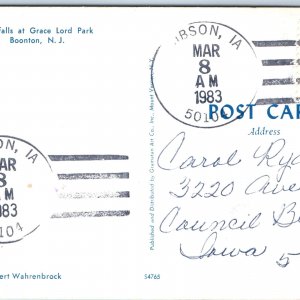 Falls at Grace Lord Park
Boonton, N. J.
IBSON, IA
MAR
8
A M
1983
5010
POST CAR
Address
Carol Ry
3220 Ave
Council B
Iowa 5
SON, IA
AR
8
A M
983
104
Published and Distributed by Grinnell Art Co. Inc., Mount Vernon, N. Y.
ert Wahrenbrock
54765